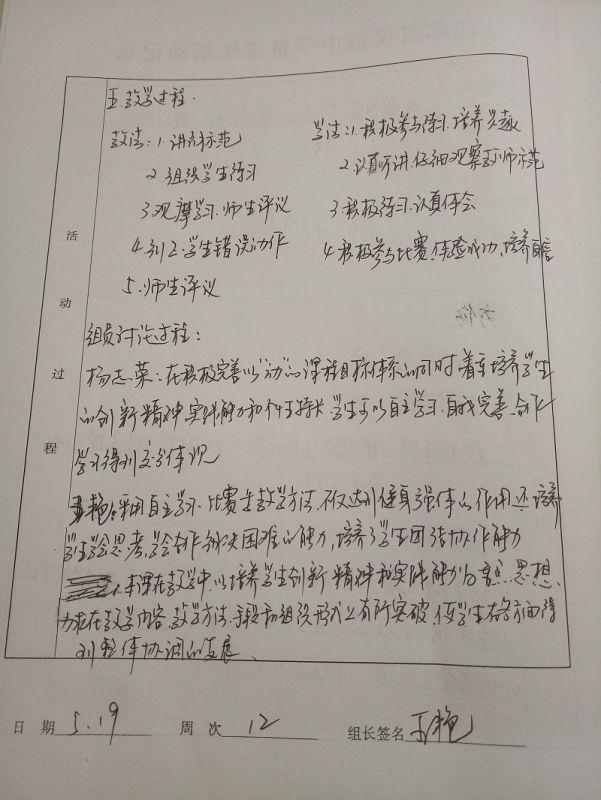 五.教学过程.
教法：1.讲解示范
学法：1.积极参与练习.培养兴趣
2.组织学生练习
2.认真听讲.仔细观察教师示范
3.观摩学习.师生评议
3.积极练习.认真体会
4.纠正学生错误动作
4.积极参与比赛.体验成功.培养自信
5.师生评议
组员讨论过程：
杨志荣：在积极完善以"动"的课程目标体系的同时.着重培养学生
的创新精神.实践能力和个性特长.学生可以自主学习.自我完善.合作
学习得到充分体现
王艳：采用自主学习.比赛等教学方法.不仅达到健身强体的作用.还培养
学生学会思考.学会合作解决困难的能力.培养了学生团结协作能力
本课在教学中.以培养学生创新精神和实践能力为意思想.
力求在教学内容.教学方法.手段和组织形式上有所突破.使学生在各方面得
到整体协调的发展.
活动过程
日 期 5.19 周 次 12 组长签名 王艳